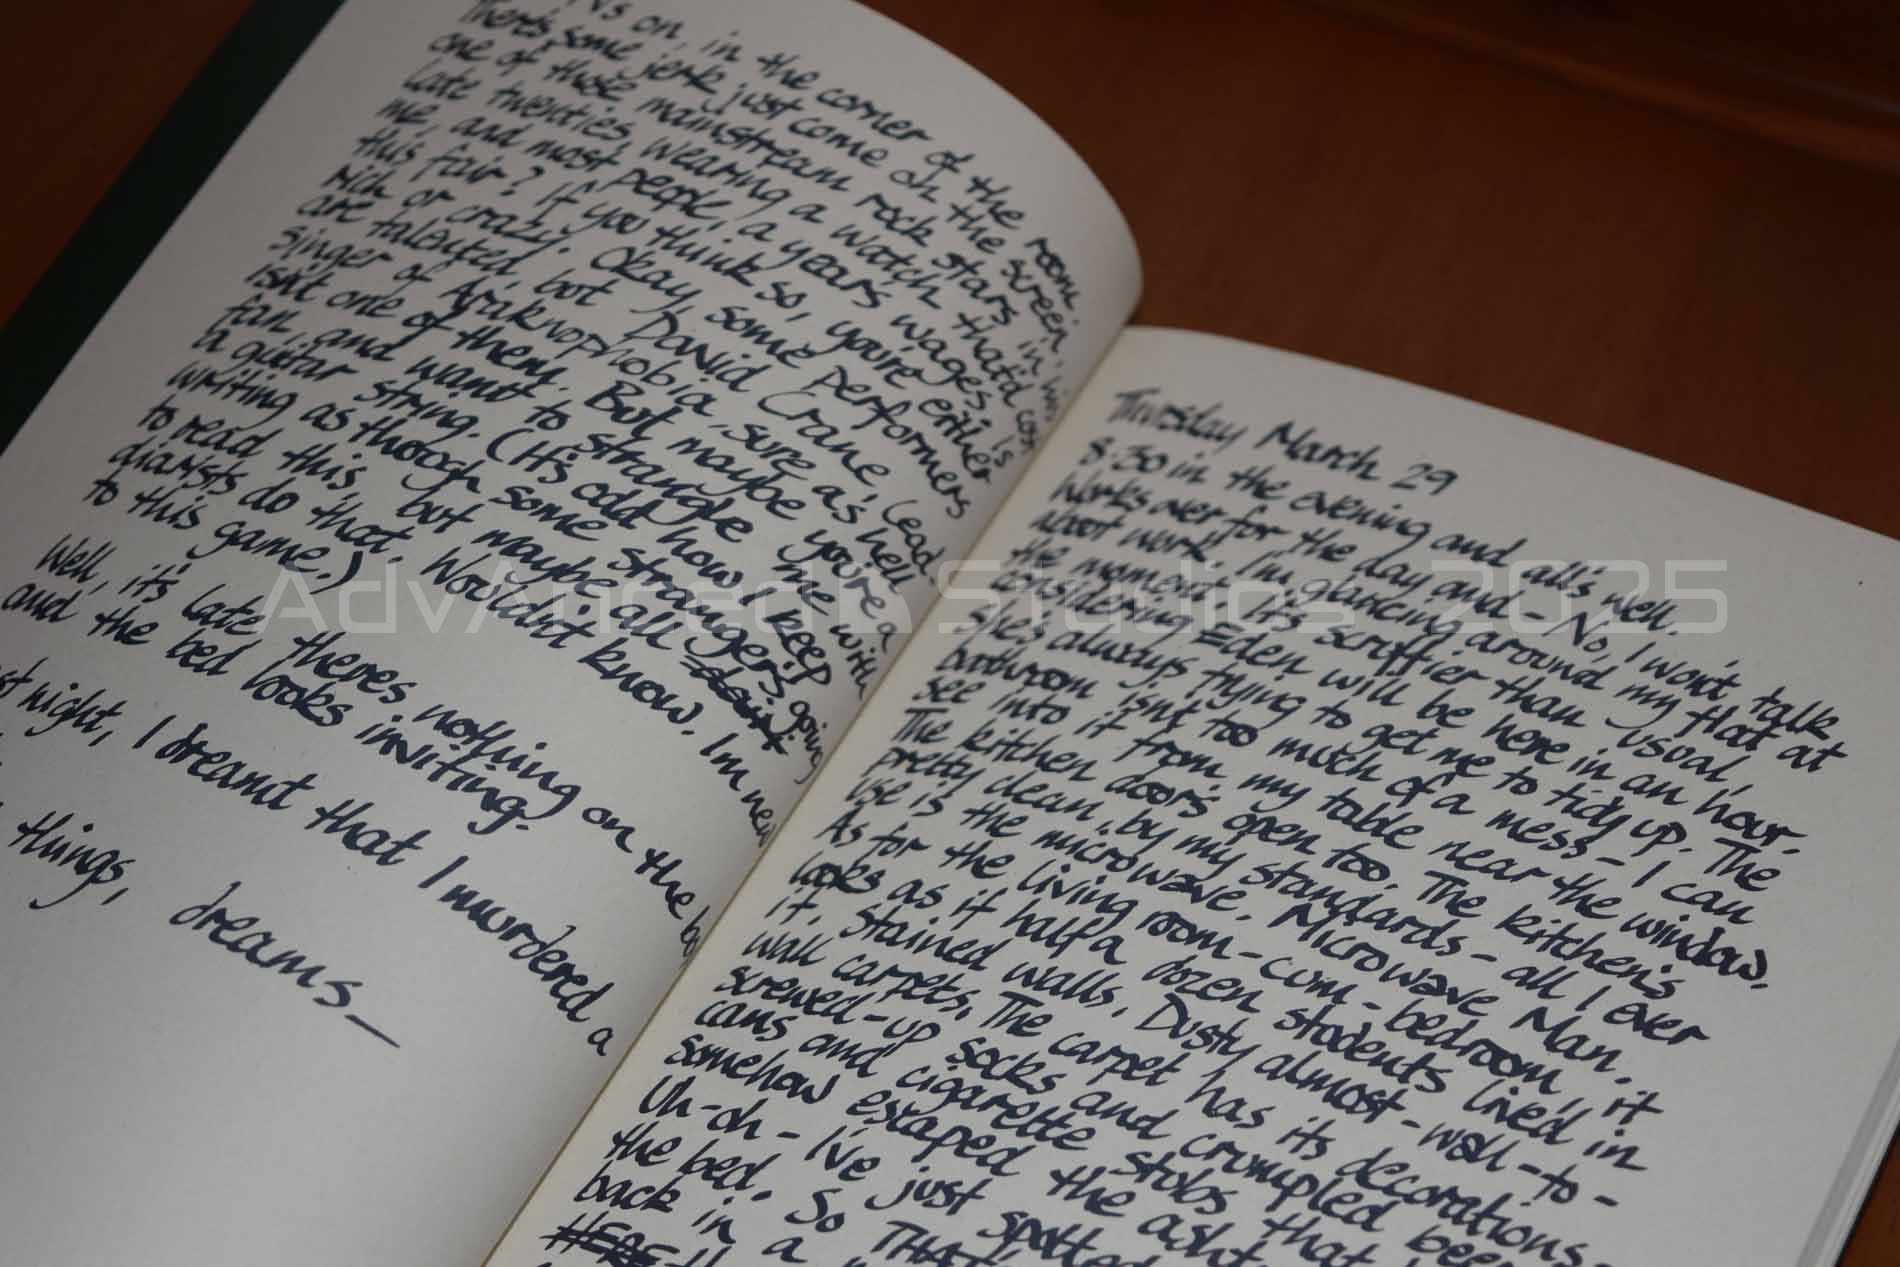 TV's on, in the corner of the room.
There's some jerk just come on the screen,
one of those mainstream rock stars in his
late twenties, wearing a watch that'd cost
me, and most people, a years wages. Is
this fair? If you think so, you're either
rich or crazy. Okay, some performers
are talented, but David Crane, lead
singer of Araknophobia, sure as hell
isn't one of them. But maybe you're a
fan, and want to strangle me with
a guitar string. (It's odd how I keep
writing as though some stranger's going
to read this, but maybe all
diarists do that. Wouldn't know. I'm new
to this game.)
Well, it's late theres nothing on the box
and the bed looks inviting.
night, I dreamt that I murdered a
things, dreams—
Thursday March 29
8:30 in the evening and all's well.
Works over for the day and – No, I won't talk
about work! I'm glancing around my flat at
the moment. It's scruffier than usual,
considering Eden will be here in an hour.
She's always trying to get me to tidy up. The
bathroom isn't too much of a mess – I can
see into it from my table near the window.
The kitchen door's open too. The kitchen's
pretty clean, by my standards – all I ever
use is the microwave. Microwave Man.
As for the living room-cum-bedroom, it
looks as if half a dozen students lived in
it. Stained walls. Dusty almost-wall-to-
wall carpets. The carpet has its decorations –
screwed-up socks and crumpled beer
cans and cigarette stubs that
somehow escaped the
Uh-oh – I've just spotted
the bed. So THAT'S
back in a
HERE
AdvAnced Studios 2025